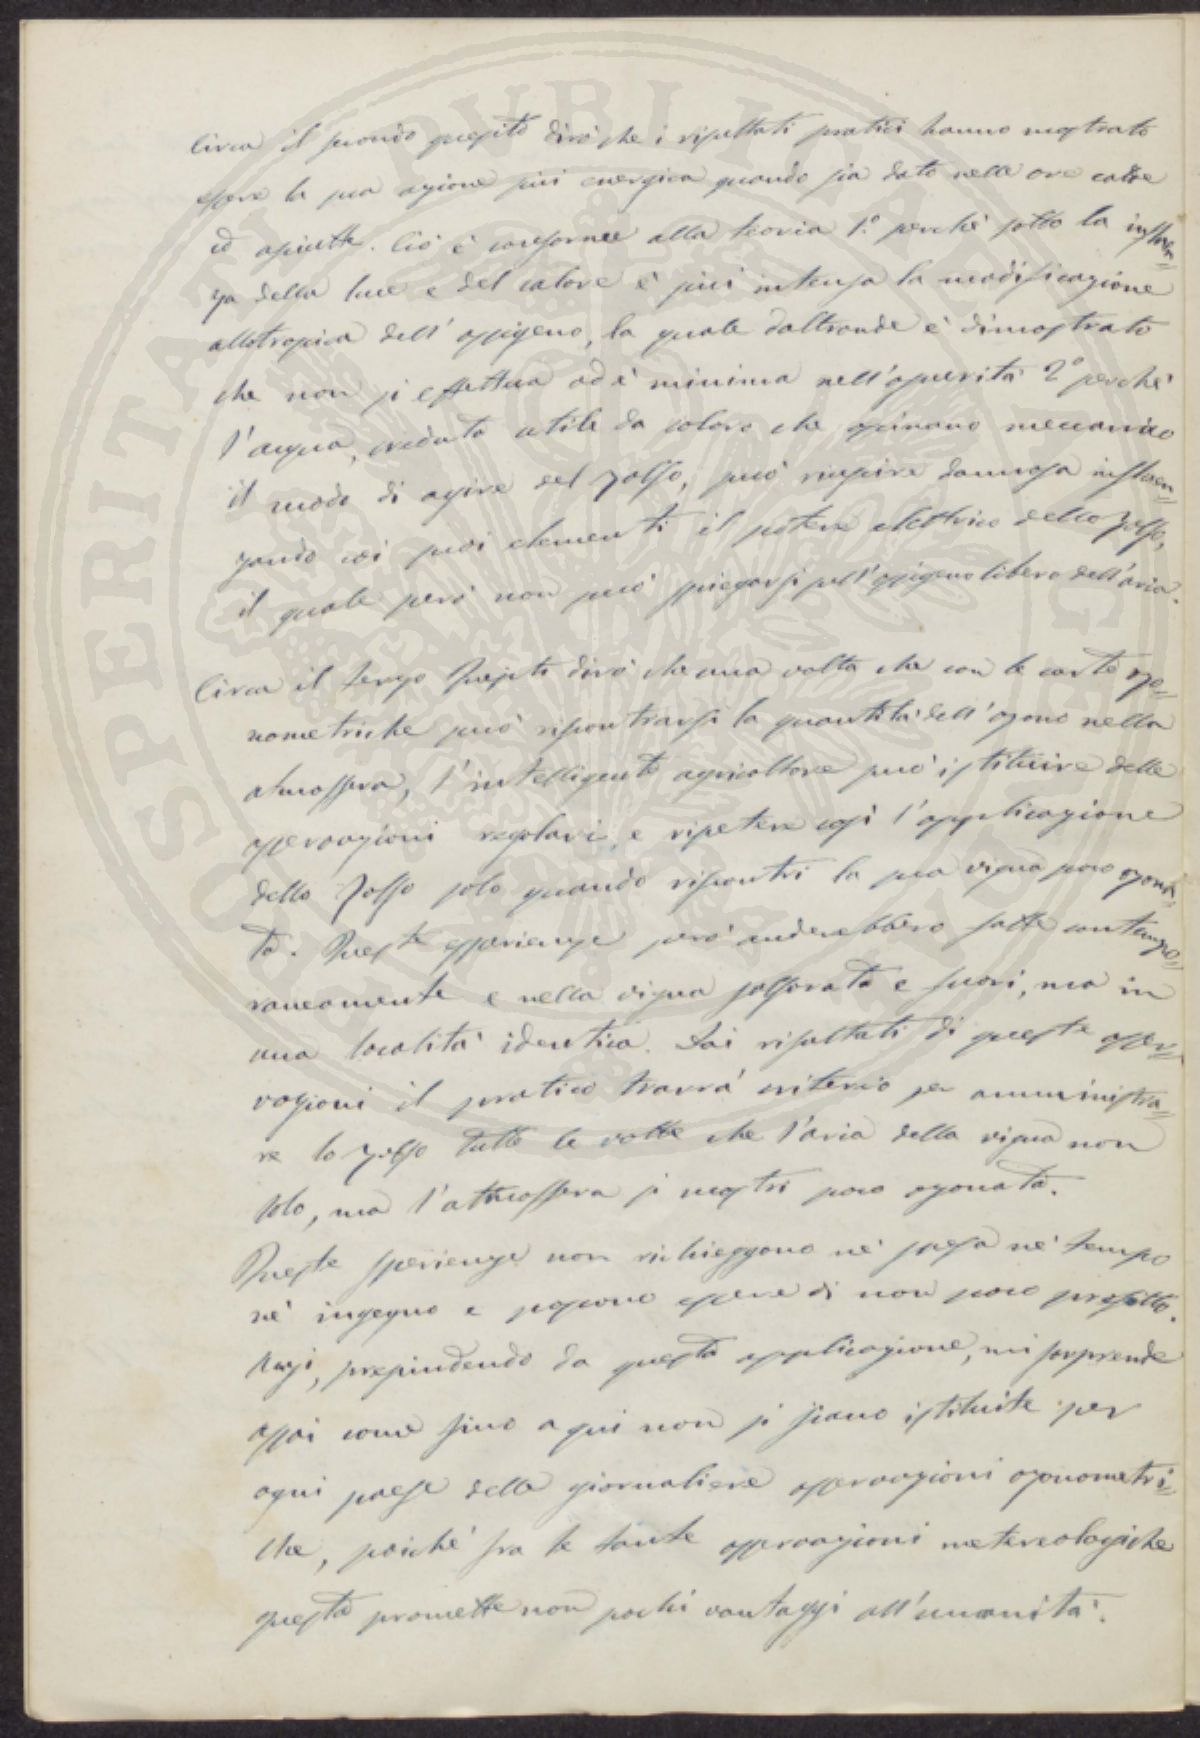 Circa il secondo quesito dirò che i risultati pratici hanno mostrato
essere la sua azione più energica quando sia dato nelle ore calde
ed asciutte. Ciò è conforme alla teoria 1.° perchè sotto la influen=
za della luce e del calore è più intensa la modificazione
allotropica dell'ossigeno, la quale daltronde è dimostrato
che non si effettua od è minima nell'oscurità 2° perchè
l'acqua, creduta utile da coloro che opinano meccanico
il modo di agire del zolfo, può riuscire dannosa influen=
zando coi suoi elementi il potere elettrico dello Zolfo,
il quale però non può spiegarsi sull'ossigeno libero dell'aria.
Circa il terzo Quesito dirò che una volta che con le carte ozo=
nometriche può riscontrarsi la quantità dell'ozono nella
atmosfera, l'intelligente agricoltore può istituire delle
osservazioni regolari, e ripetere così l'applicazione
dello Zolfo solo quando riscontri la sua vigna poco ozona=
ta. Queste esperienze però anderebbero fatte contempo=
raneamente e nella vigna solforata e fuori, ma in
una località identica. Dai risultati di queste osser=
vazioni il pratico trarrà criterio per amministra=
re lo zolfo tutte le volte che l'aria della vigna non
solo, ma l'atmosfera si mostri poco ozonata.
Queste sperienze non richieggono nè spesa nè tempo
nè ingegno e possono essere di non poco profitto.
Anzi, prescindendo da questa applicazione, mi sorprende
assai come fino a qui non si siano istituite per
ogni paese delle giornaliere osservazioni ozonometri=
che, poichè fra le tante osservazioni metereologiche
questa promette non pochi vantaggi all'umanità.
SOSPERITATI PVBLICAE AVGENDAE